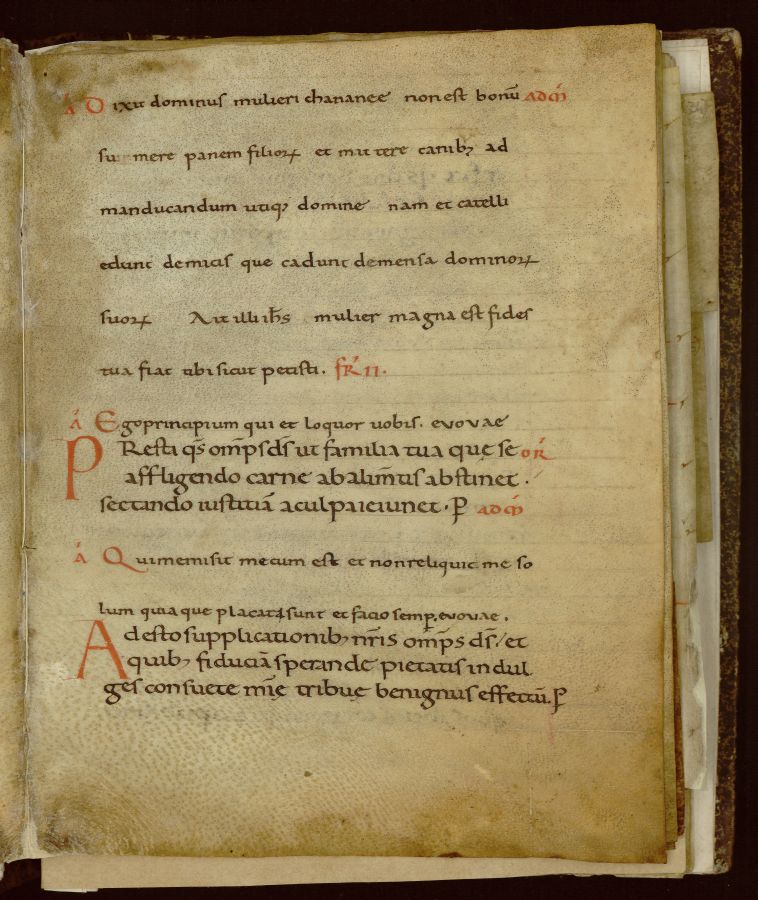 A Dixit dominus mulieri chananee non est bonū ad m̄
su mere panem filioꝝ et mittere canibꝫ ad
manducandum utiqꝫ domine nam et catelli
edunt de micis que cadunt de mensa dominoꝝ
suoꝝ Ait illi ih̄s mulier magna est fides
tua fiat tibi sicut petisti. FR̄ II.
A Ego principium qui et loquor uobis. evovae
PResti qs̄ omp̄s ds̄ ut familia tua que se or̄
affligendo carne ab alim̄tis abstinet.
sectando iustitiā a culpa ieiunet. P̄ ad m̄
A Qui me misit mecum est et non reliquit me so
lum quia que placita sunt ei facio semp̄. evovae.
Adesto supplicationibꝫ nr̄is omp̄s ds̄ et
quibꝫ fiduciā sperande pietatis indul
ges consuete mīe tribue benignus effectū. P̄